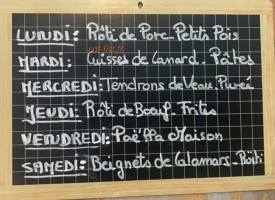 LUNDI: Rôti de Porc_Petits Pois
eat-list.fr
MARDI: Cuisses de Canard_Pâtes
MERCREDI: Tendrons de Veau_Purée
JEUDI: Rôti de Boeuf_Frites
VENDREDI: Paëlla Maison
SAMEDI: Beignets de Calamars_Rösti